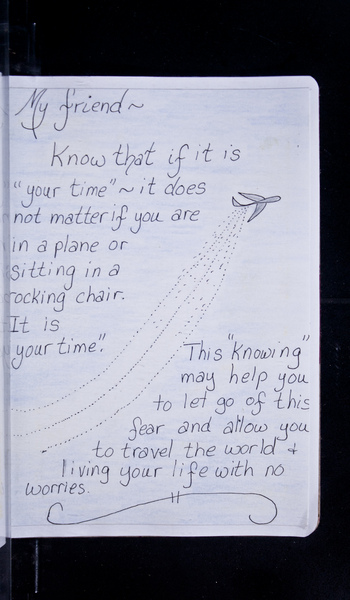 My friend~
Know that if it is
"your time"~it does
not matter if you are
in a plane or
sitting in a
rocking chair.
It is
your time".
This "Knowing"
may help you
to let go of this
fear and allow you
to travel the world &
living your life with no
worries.